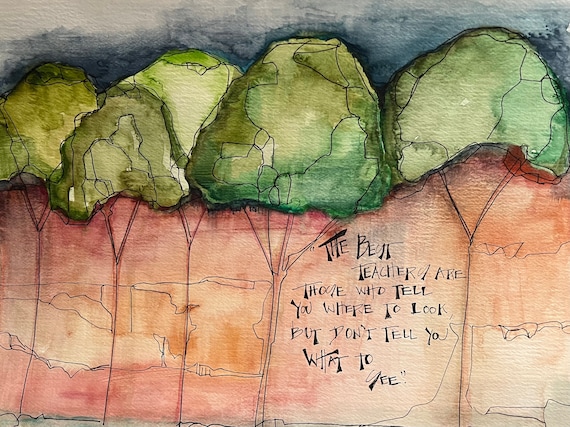 "THE BEST
TEACHERS ARE
THOSE WHO TELL
YOU WHERE TO LOOK
BUT DON'T TELL YOU
WHAT TO
SEE."